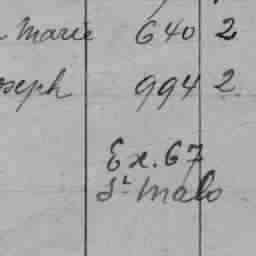 Marie 640 2
oseph 994 2.
Ex. 67
St Malo